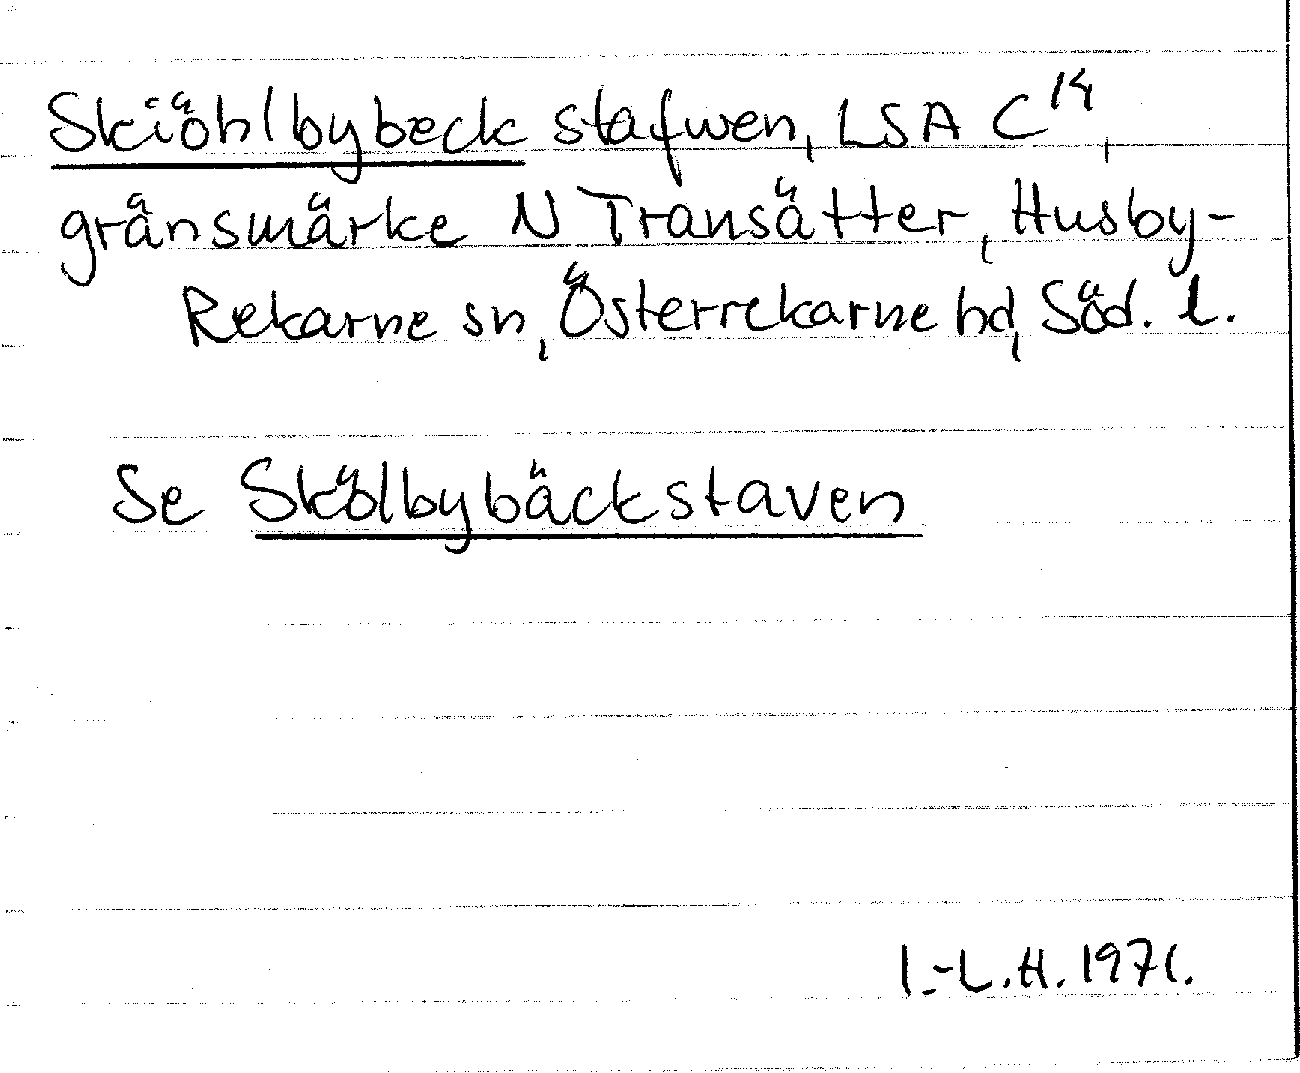 Skiöhlbybeck stafwen, LSA C¹⁴,
gränsmärke N Transätter, Husby-
Rekarne sn, Österrekarne hd, Söd. l.
Se Skölbybäckstaven
I.-L.H. 1971.